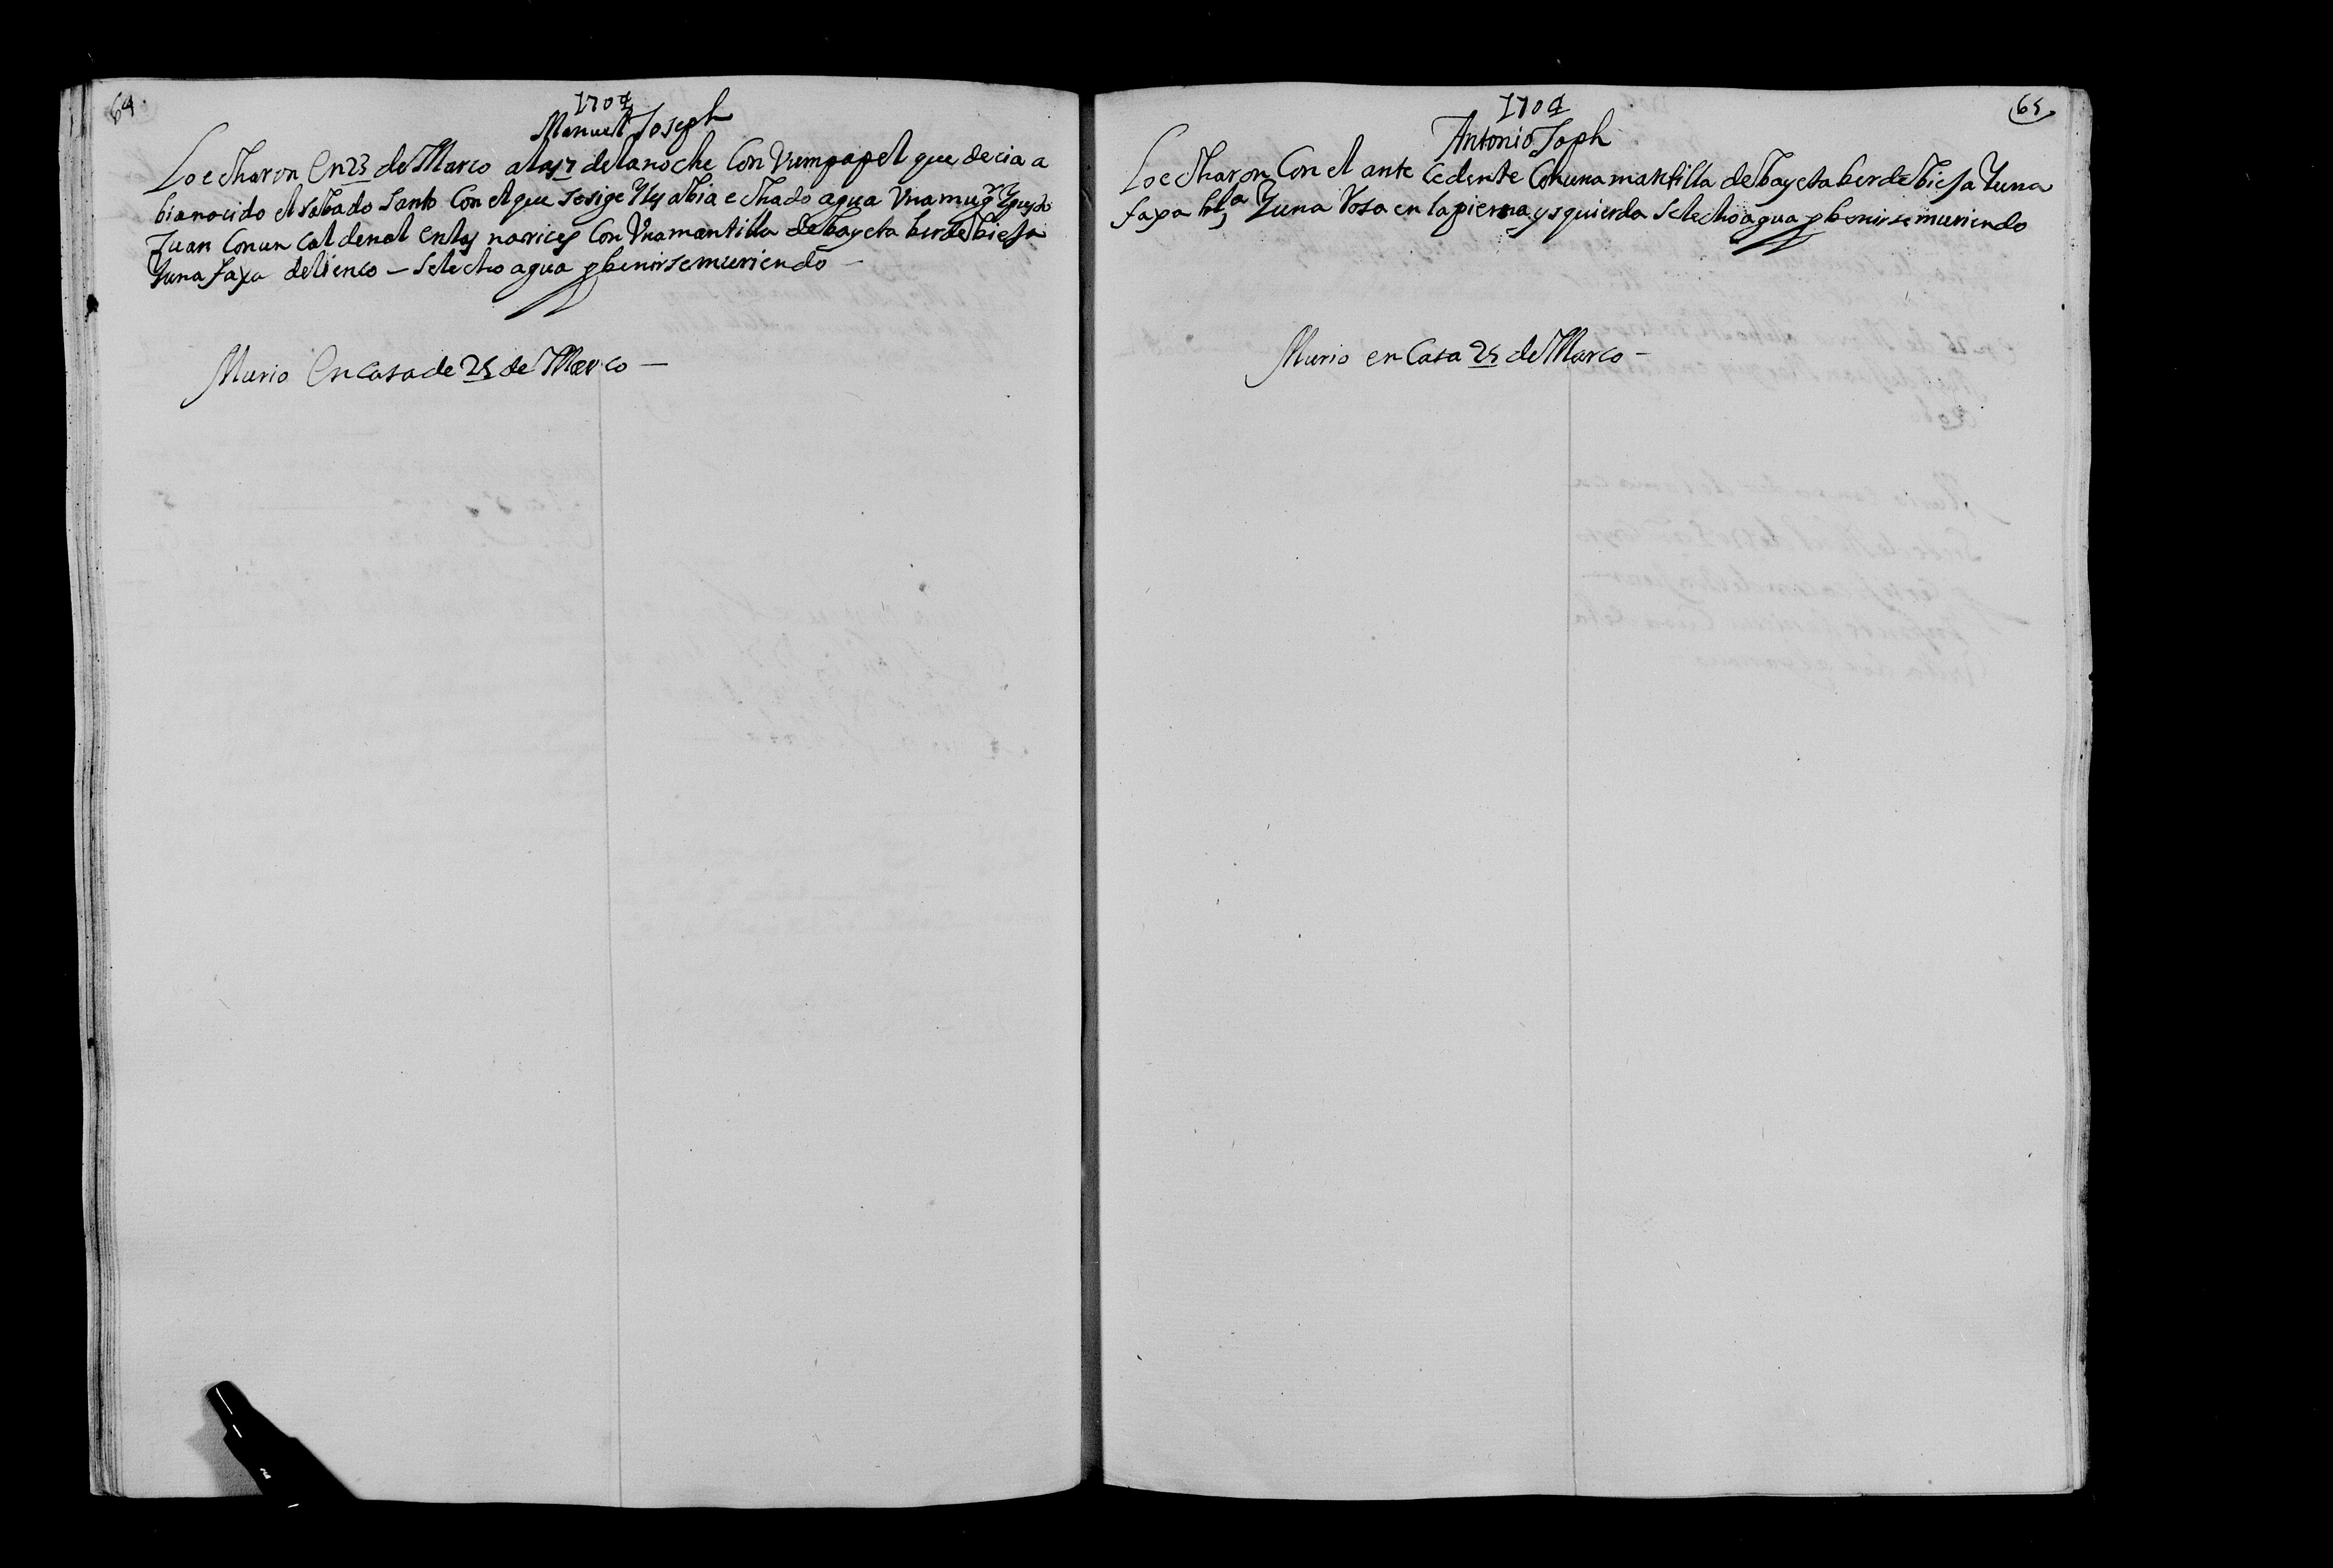 64
1704
Manuel Joseph
Lo echaron En 23 de Março a las 7 de la noche Con Vn papel que decia a
bia nacido el sabado santo Con el que se sige Y les abia echado agua Vna mugr
Juan Con un Caldenal en las narices Con Vna mantilla de bayeta berde bieja
Y una faxa de lienço — se le echo agua p benirse muriendo —
Murio En casa de 25 de Março —
1704
65
Antonio Joph
Lo echaron Con el ante cedente Con una mantilla de bayeta berde bieja Y una
faxa Y una Rosa en la pierna ysquierda se le echo agua p benirse muriendo
Murio en Casa 25 de Março —